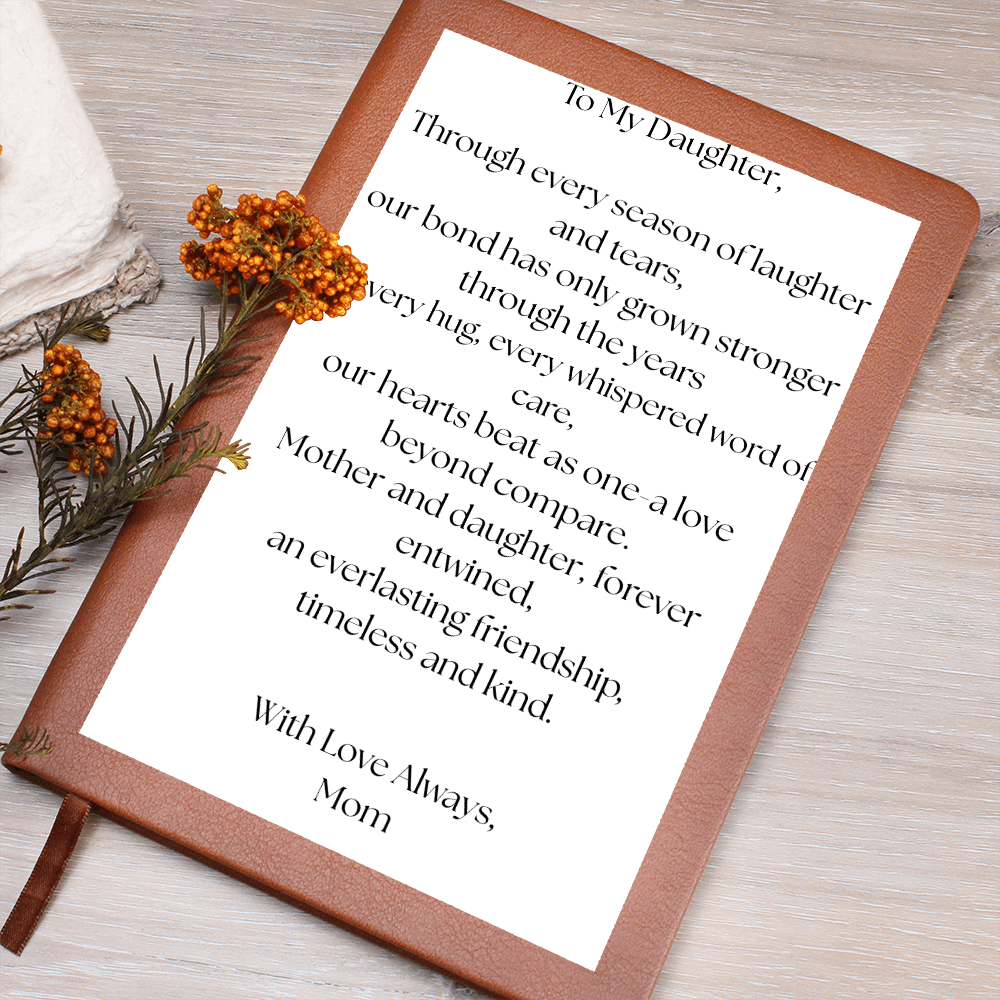 To My Daughter,
Through every season of laughter
and tears,
our bond has only grown stronger
through the years
very hug, every whispered word of
care,
our hearts beat as one-a love
beyond compare.
Mother and daughter, forever
entwined,
an everlasting friendship,
timeless and kind.
With Love Always,
Mom